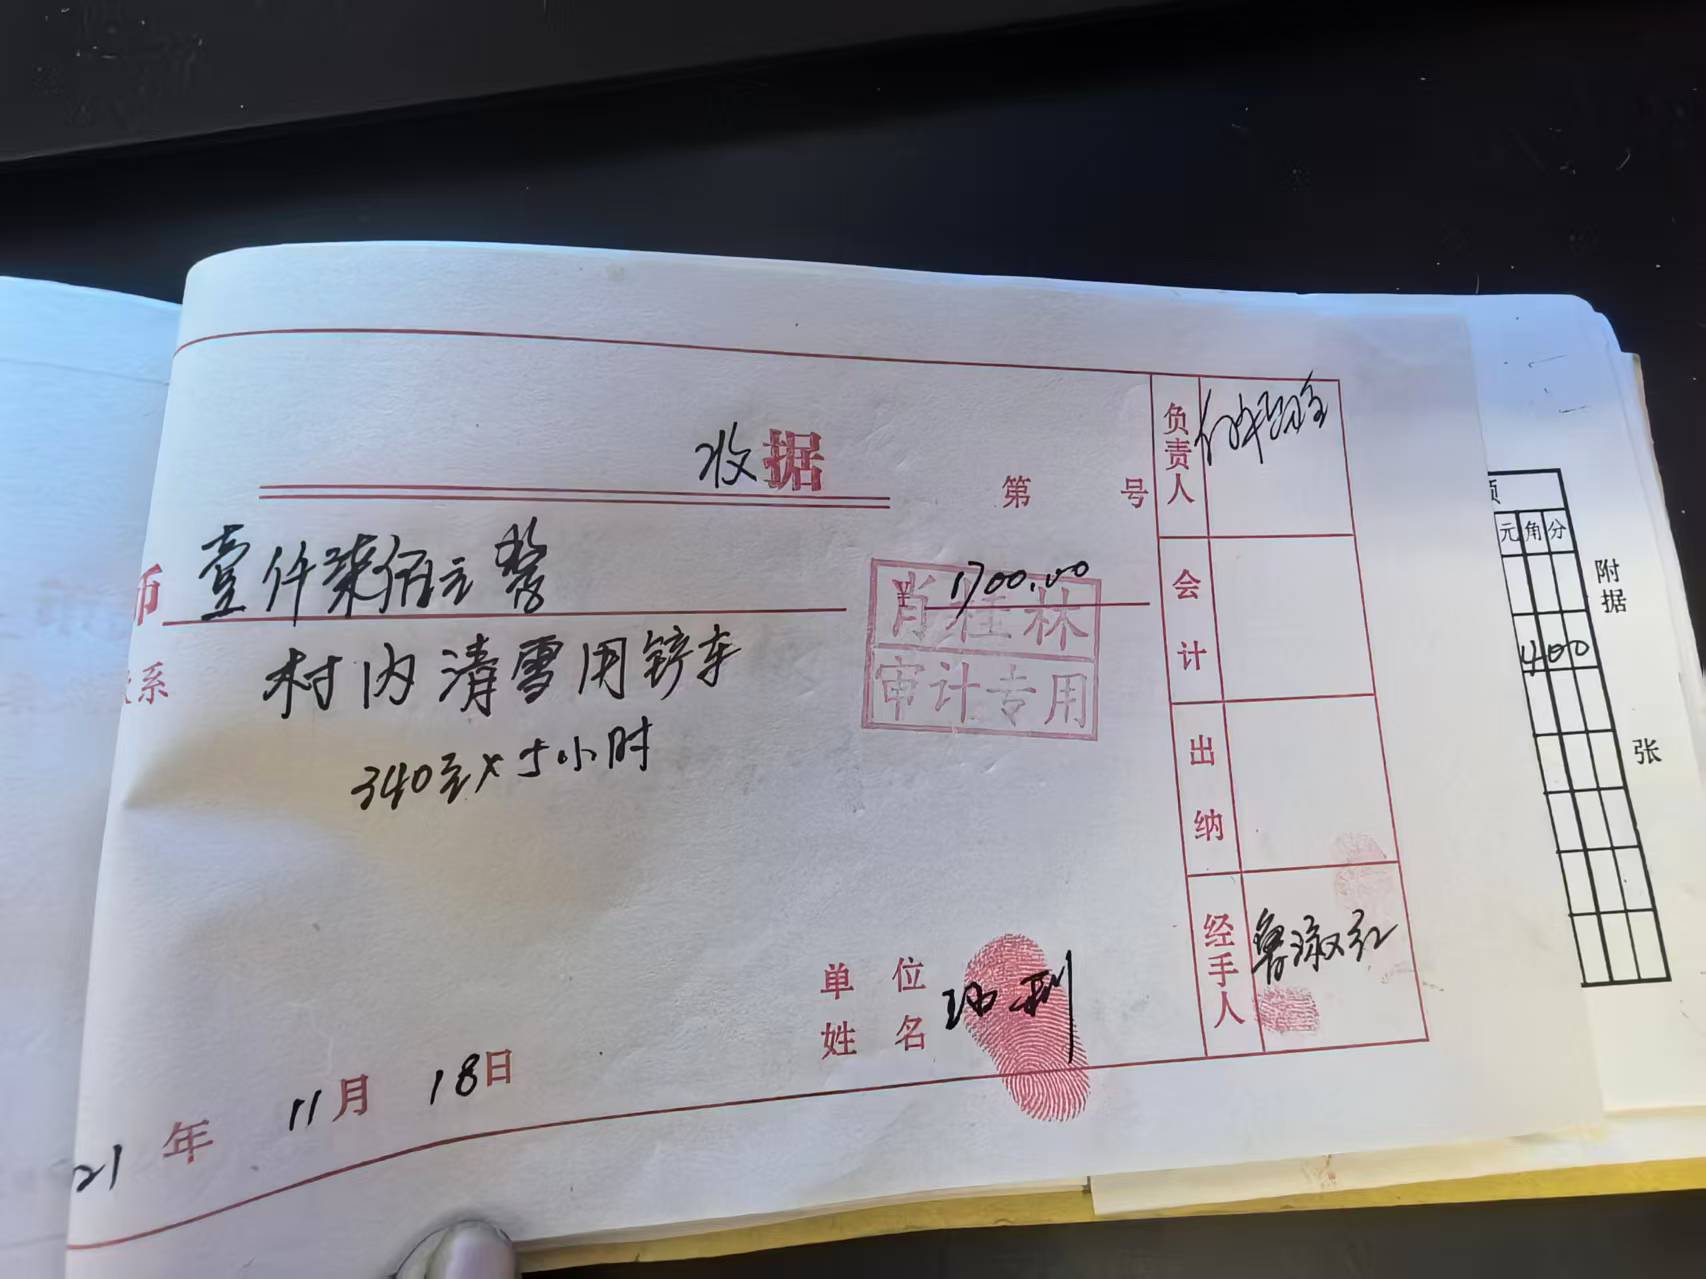 收据
第 号
币 壹仟柒佰元整
¥1700.00
系 村内清雪用铲车
340元×5小时
肖桂林
审计专用
负责人
会计
出纳
经手人 鲁淑红
单位
姓名
21年 11月 18日
元角分
400
附据
张